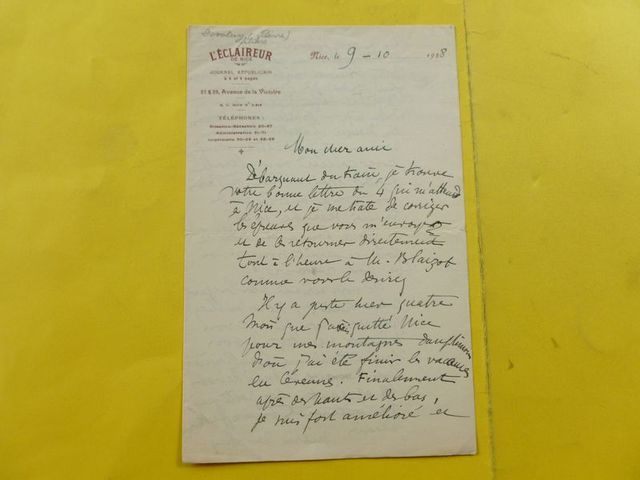 L'ÉCLAIREUR
DE NICE
JOURNAL RÉPUBLICAIN
27 & 29, Avenue de la Victoire
TÉLÉPHONES :
Nice, le 9 - 10 1928
Mon cher ami
Débarquant du train, je trouve
votre bonne lettre du 4 qui m'attend
à Nice, et je me hate de corriger
les épreuves que vous m'envoyez
et de les retourner directement
tout à l'heure à M. Blaizot
comme vous le desirez
Il y a juste hier quatre
mois que j'ai quitté Nice
pour mes montagnes
d'où j'ai été finir les vacances
en Cévennes. Finalement
après des hauts et des bas,
je suis fort amélioré et